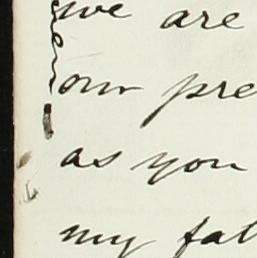 we are
our pre
as you
my fat